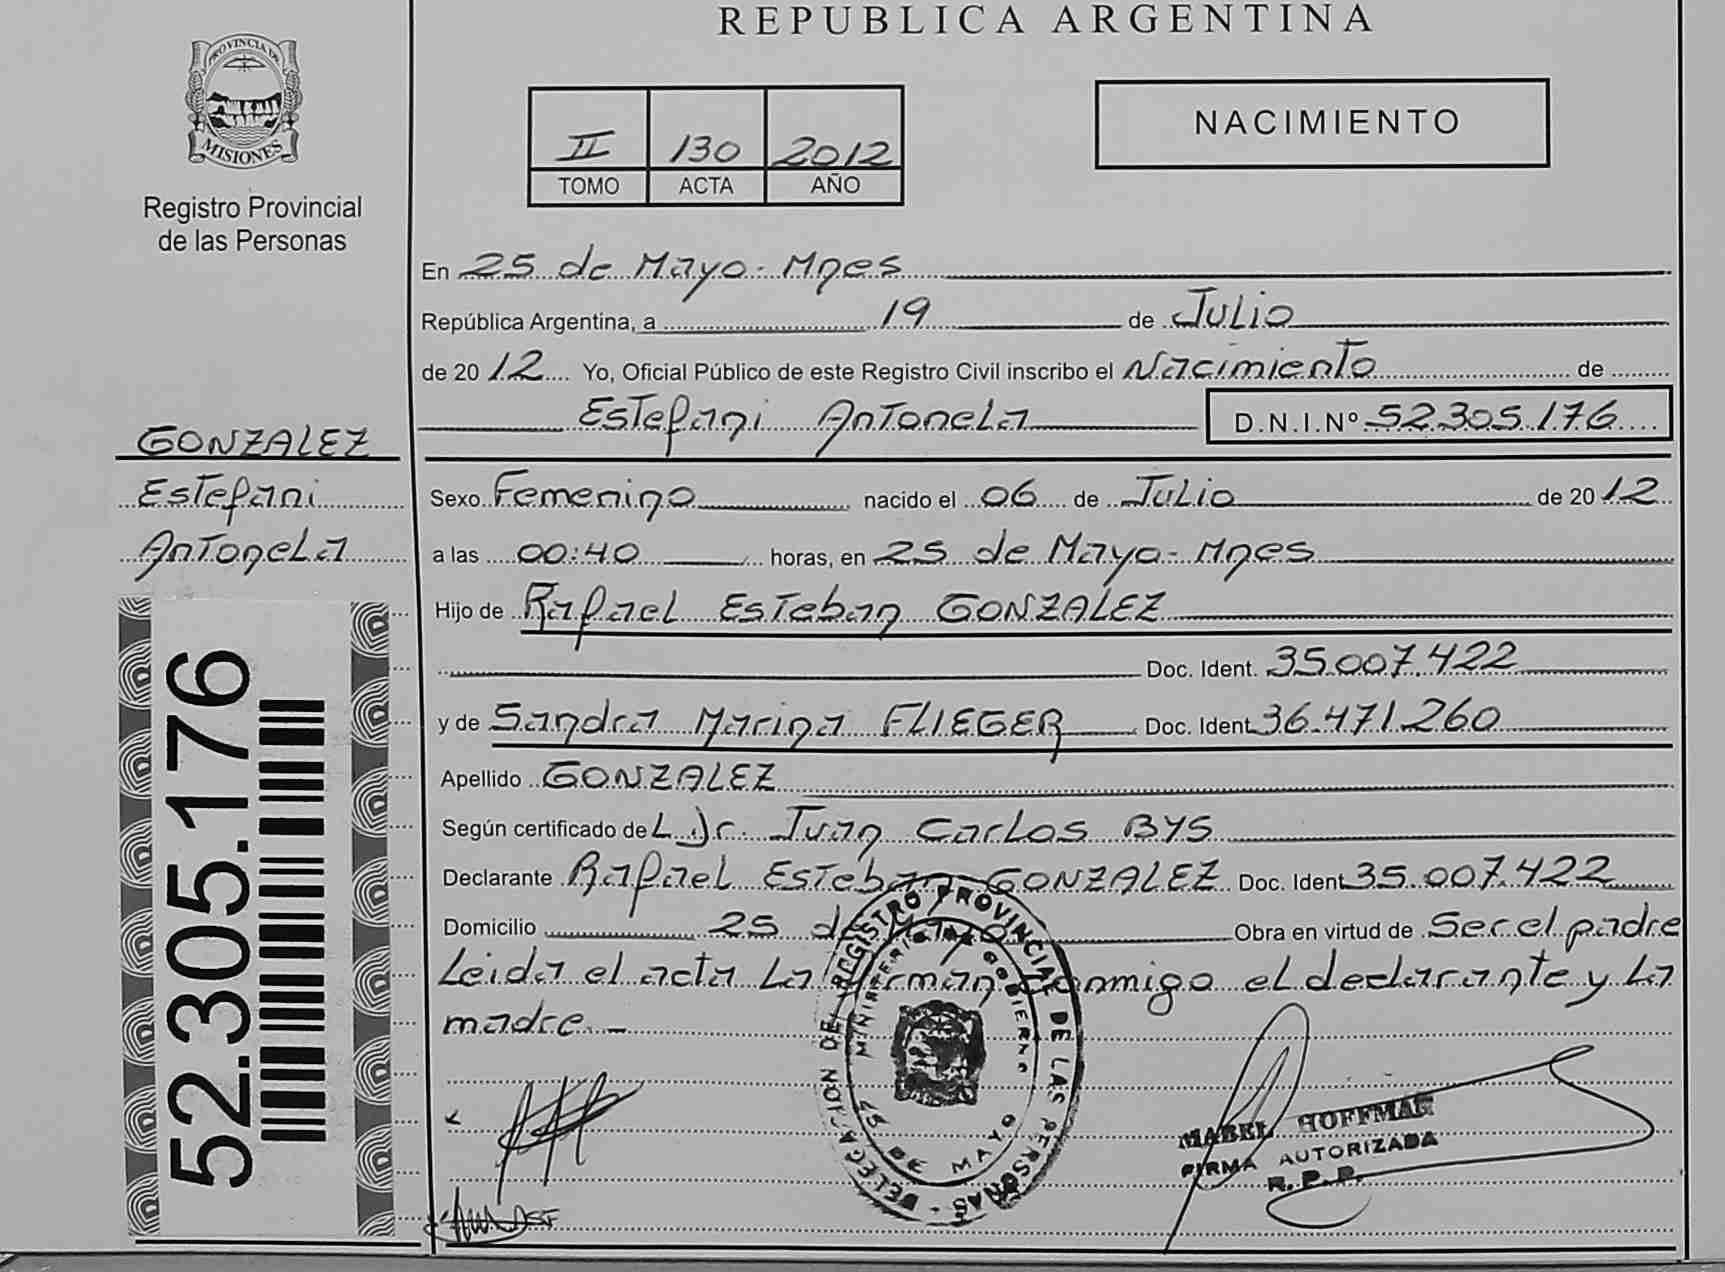 REPUBLICA ARGENTINA
PROVINCIA DE
MISIONES
Registro Provincial
de las Personas
II 130 2012
TOMO ACTA AÑO
NACIMIENTO
En 25 de Mayo - Mnes
República Argentina, a 19 de Julio
de 2012 Yo, Oficial Público de este Registro Civil inscribo el Nacimiento de
Estefani Antonela D.N.I.Nº 52.305.176
GONZALEZ
Estefani
Antonela
52.305.176
Sexo Femenino nacido el 06 de Julio de 2012
a las 00:40 horas, en 25 de Mayo - Mnes
Hijo de Rafael Esteban GONZALEZ
Doc. Ident. 35.007.422
y de Sandra Marina FLIEGER Doc. Ident. 36.471.260
Apellido GONZALEZ
Según certificado de L Dr. Juan Carlos BYS
Declarante Rafael Esteban GONZALEZ Doc. Ident 35.007.422
Domicilio 25 de Mayo Obra en virtud de Ser el padre
Leida el acta La firman conmigo el declarante y La
madre. -
DELEGACION DE REGISTRO PROVINCIAL DE LAS PERSONAS -
MINISTERIO DE GOBIERNO
25 DE MAYO
MABEL HOFFMAN
FIRMA AUTORIZADA
R.P.P.